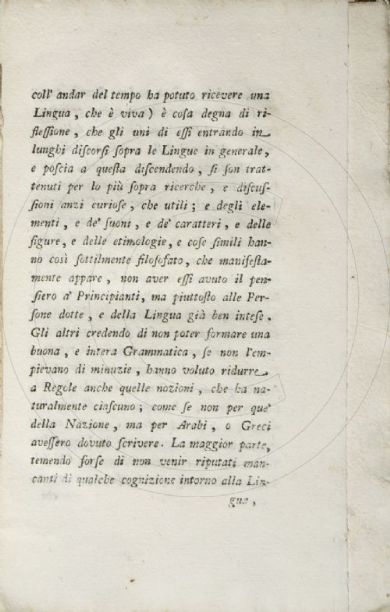 coll' andar del tempo ha potuto ricevere una
Lingua, che è viva) è coſa degna di ri-
fleſſione, che gli uni di eſſi entrando in
lunghi diſcorſi ſopra le Lingue in generale,
e poſcia a queſta diſcendendo, ſi ſon trat-
tenuti per lo più ſopra ricerche, e diſcuſ-
ſioni anzi curioſe, che utili; e degli ele-
menti, e de' ſuoni, e de' caratteri, e delle
figure, e delle etimologie, e coſe ſimili han-
no così ſottilmente filoſofato, che manifeſta-
mente appare, non aver eſſi avuto il pen-
ſiero a' Principianti, ma piuttoſto alle Per-
ſone dotte, e della Lingua già ben inteſe.
Gli altri credendo di non poter formare una
buona, e intera Grammatica, ſe non l'em-
pievano di minuzie, hanno voluto ridurre
a Regole anche quelle nozioni, che ha na-
turalmente ciaſcuno; come ſe non per que'
della Nazione, ma per Arabi, o Greci
aveſſero dovuto ſcrivere. La maggior parte,
temendo forſe di non venir riputati man-
canti di qualche cognizione intorno alla Lin-
gua,